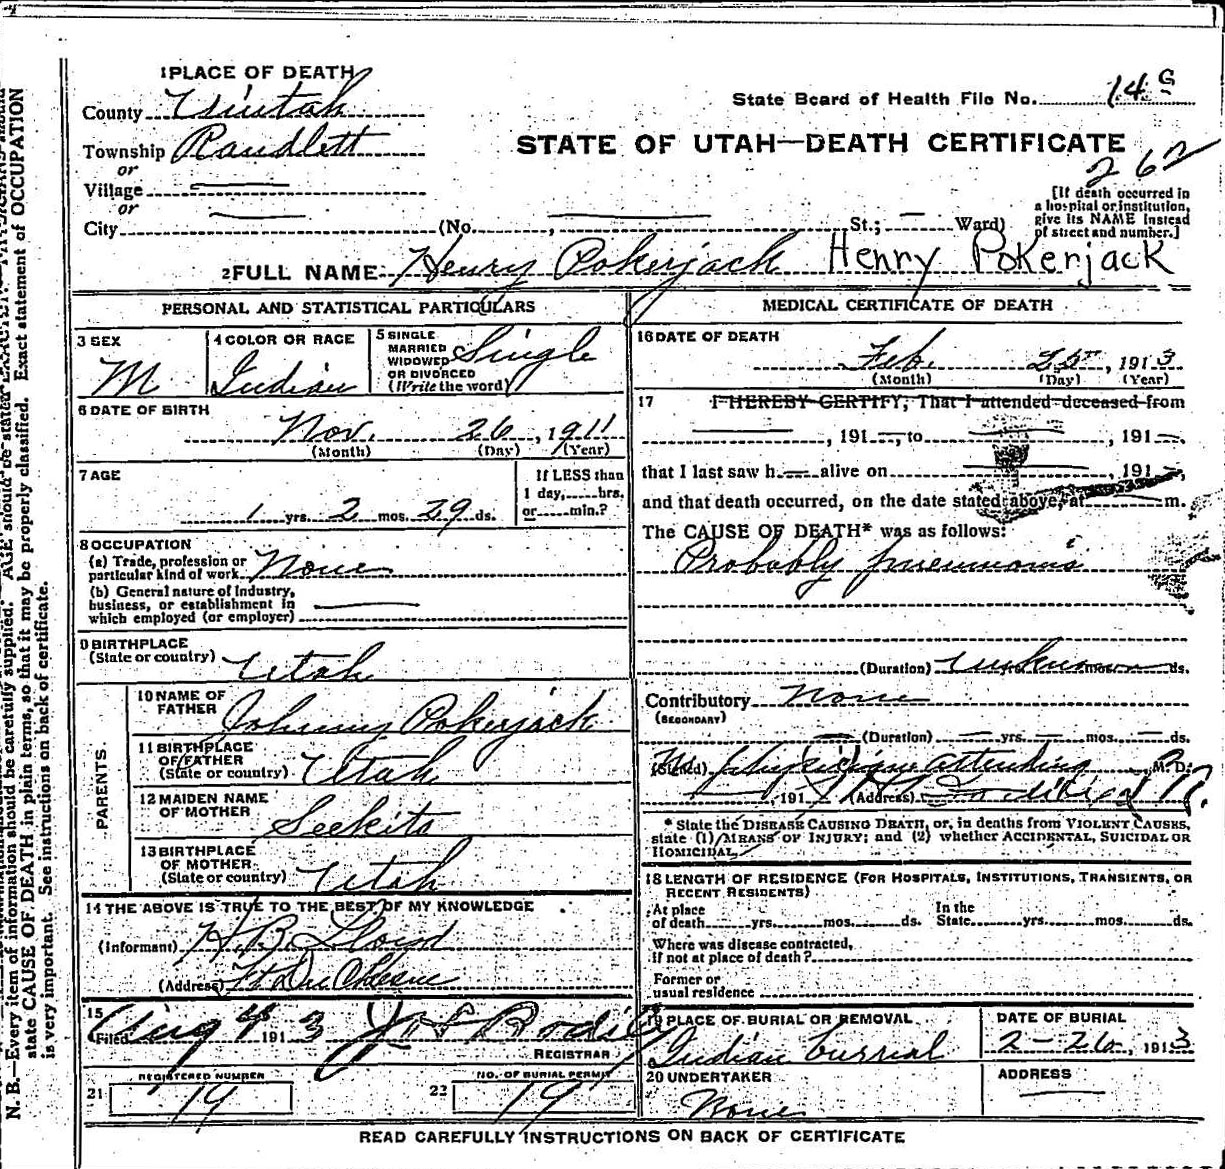 1 PLACE OF DEATH
County Uintah
State Board of Health File No. 14 G
Township Randlett
STATE OF UTAH—DEATH CERTIFICATE
262
or
Village
or
City (No. , St.; Ward)
[If death occurred in
a hospital or institution,
give its NAME instead
of street and number.]
2 FULL NAME Henry Pokerjack Henry Pokerjack
PERSONAL AND STATISTICAL PARTICULARS
3 SEX
M
4 COLOR OR RACE
Indian
5 SINGLE
MARRIED
WIDOWED
OR DIVORCED
(Write the word)
Single
6 DATE OF BIRTH
Nov. 26, 1911
(Month) (Day) (Year)
7 AGE
1 yrs. 2 mos. 29 ds.
If LESS than
1 day, hrs.
or min.?
8 OCCUPATION
(a) Trade, profession or
particular kind of work None
(b) General nature of industry,
business, or establishment in
which employed (or employer)
9 BIRTHPLACE
(State or country) Utah
PARENTS
10 NAME OF
FATHER
Johnny Pokerjack
11 BIRTHPLACE
OF FATHER
(State or country) Utah
12 MAIDEN NAME
OF MOTHER
Seekits
13 BIRTHPLACE
OF MOTHER
(State or country) Utah
14 THE ABOVE IS TRUE TO THE BEST OF MY KNOWLEDGE
(Informant) H.B. Lloyd
(Address) Ft Du Chesne
15
Filed Aug 4 1913
REGISTRAR
REGISTERED NUMBER
21 19
NO. OF BURIAL PERMIT
22 19
MEDICAL CERTIFICATE OF DEATH
16 DATE OF DEATH
Feb. 25, 1913
(Month) (Day) (Year)
17 I HEREBY CERTIFY, That I attended deceased from
, 191 , to , 191 .
that I last saw h alive on , 191 ,
and that death occurred, on the date stated above, at m.
The CAUSE OF DEATH* was as follows:
Probably pneumonia
(Duration) unknown yrs. mos. ds.
Contributory None
(SECONDARY)
(Duration) yrs. mos. ds.
(Signed) No physician attending M. D.
, 191 (Address)
* State the DISEASE CAUSING DEATH, or, in deaths from VIOLENT CAUSES,
state (1) MEANS OF INJURY; and (2) whether ACCIDENTAL, SUICIDAL OR
HOMICIDAL.
18 LENGTH OF RESIDENCE (FOR HOSPITALS, INSTITUTIONS, TRANSIENTS, OR
RECENT RESIDENTS)
At place
of death yrs. mos. ds.
In the
State yrs. mos. ds.
Where was disease contracted,
if not at place of death?
Former or
usual residence
19 PLACE OF BURIAL OR REMOVAL
Indian burrial
DATE OF BURIAL
2-26, 1913
20 UNDERTAKER
None
ADDRESS
READ CAREFULLY INSTRUCTIONS ON BACK OF CERTIFICATE
N. B.—Every item of information should be carefully supplied. AGE should be stated EXACTLY. PHYSICIANS should
state CAUSE OF DEATH in plain terms, so that it may be properly classified. Exact statement of OCCUPATION
is very important. See instructions on back of certificate.